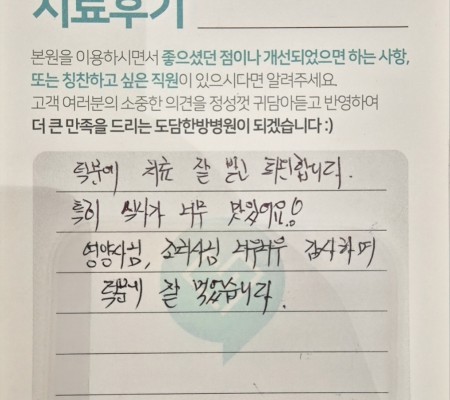 치료후기
본원을 이용하시면서 좋으셨던 점이나 개선되었으면 하는 사항,
또는 칭찬하고 싶은 직원이 있으시다면 알려주세요.
고객 여러분의 소중한 의견을 정성껏 귀담아듣고 반영하여
더 큰 만족을 드리는 도담한방병원이 되겠습니다 :)
덕분에 치료 잘 받고 퇴원합니다.
특히 식사가 너무 맛있어요!
영양사님, 조리사님 너무너무 감사하며
덕분에 잘 먹었습니다.